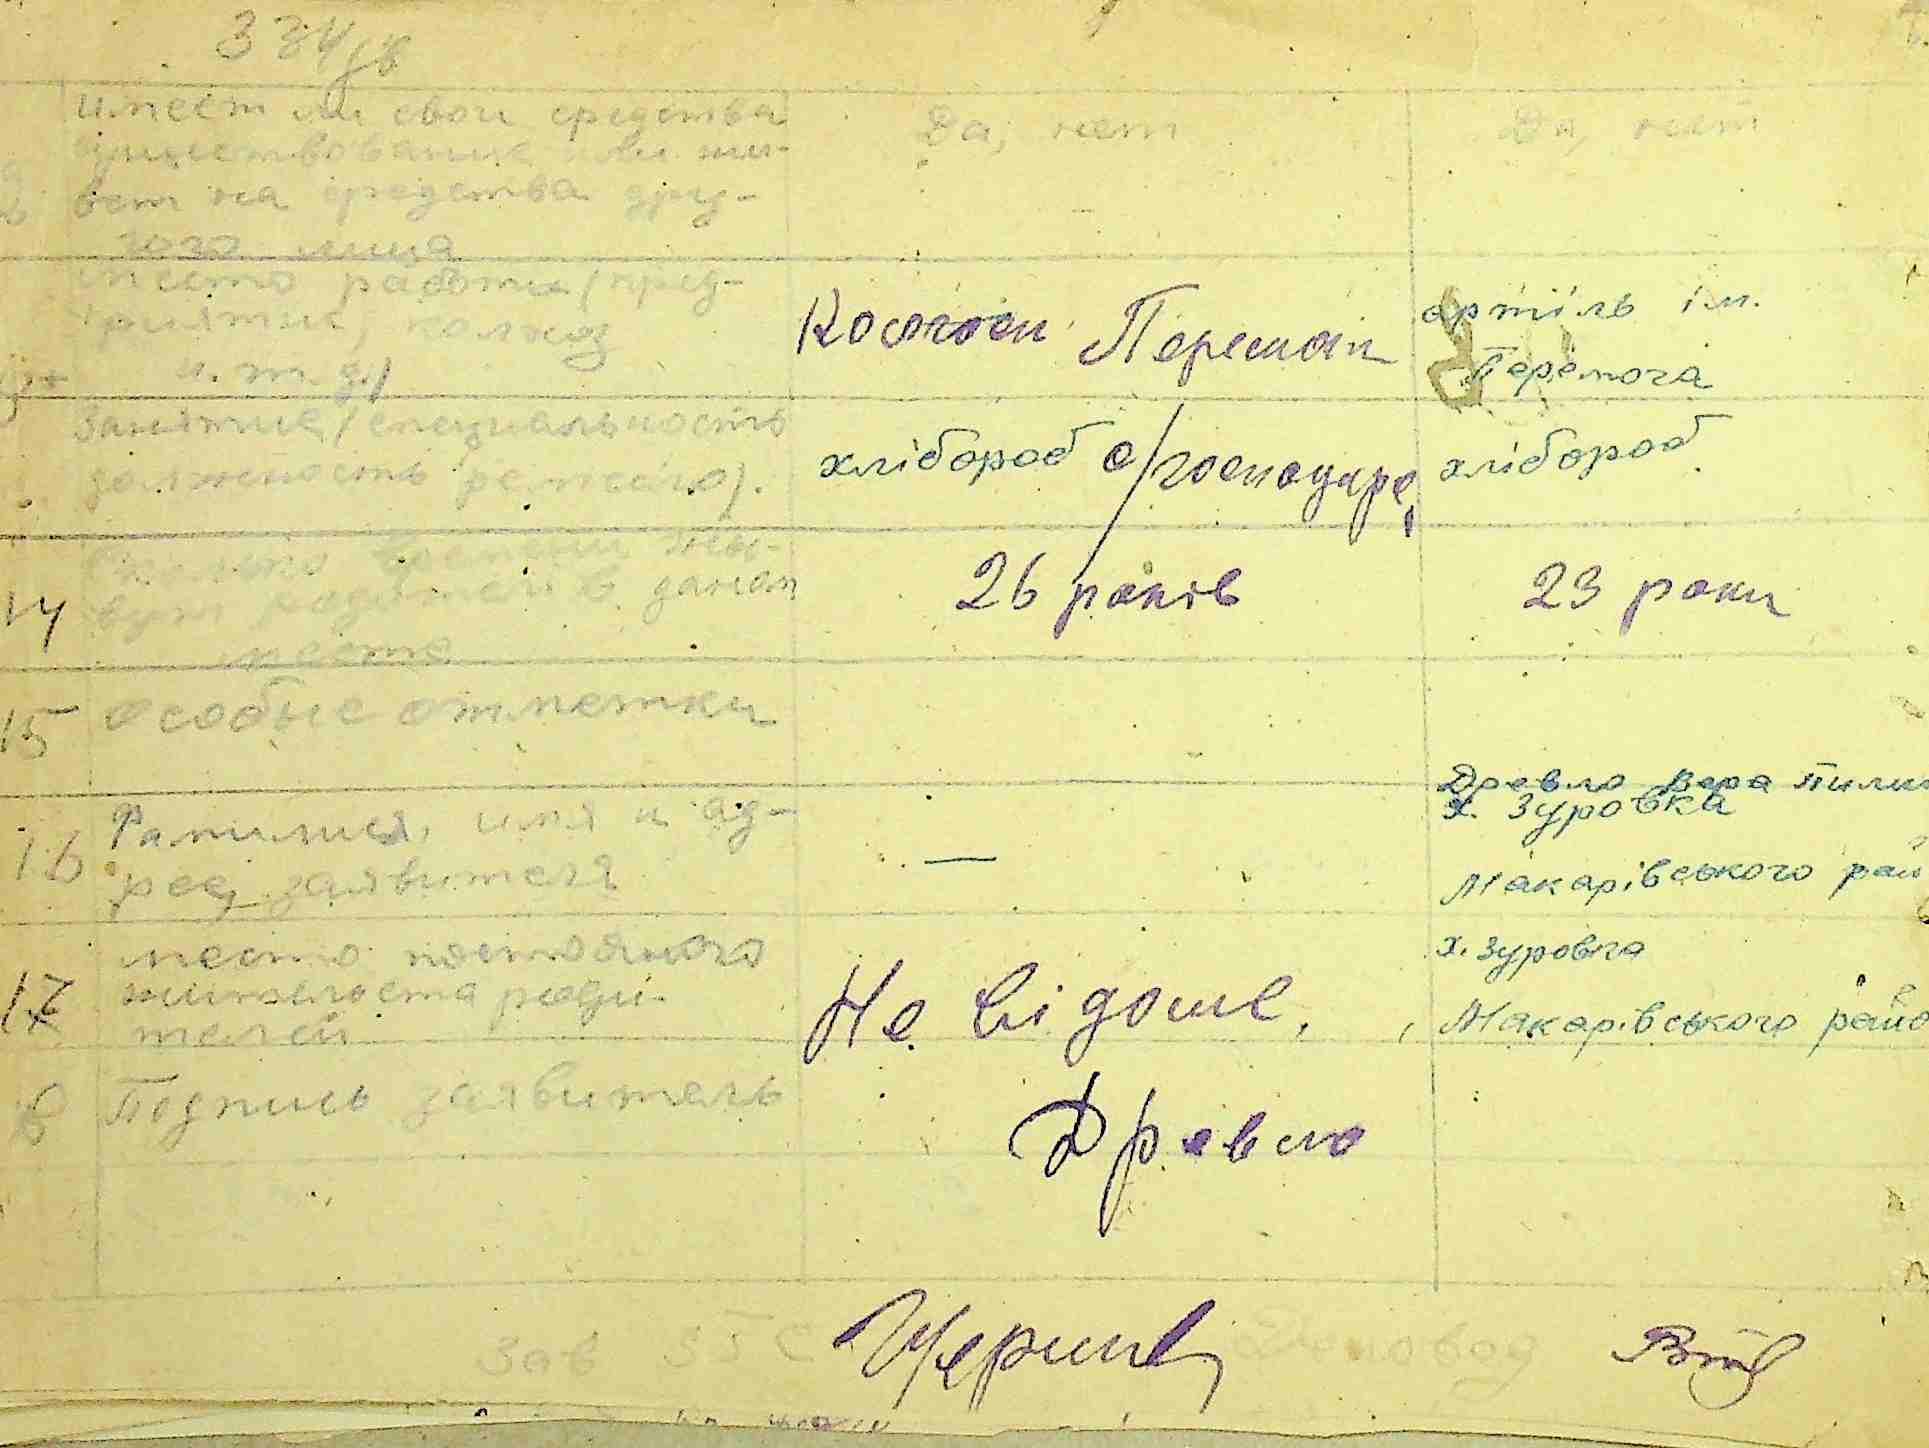 334/зв
имеет ли свои средства
существование или жи-
вет на средства дру-
гого лица
Да, нет
Да, нет
место работы (пред-
приятие, колхоз
и.т.д.)
Перемаги
артіль ім.
Перемога
Занятие (специальность
должность ремесло).
хлібороб с/господаре
хлібороб
14
Сколько времени жи-
вут родители в даном
месте
26 років
23 роки
15
Особые отметки
16
Фамилия, имя и ад-
рес заявителя
—
Древло Вера Пили
х. Зуровка
Макарівського рай
17
место постоянного
жительства роди-
телей
Не відоме,
х. Зуровка
Макарівського райо
8
Подпись заявитель
Древло
Зав ЗГС
Діловод